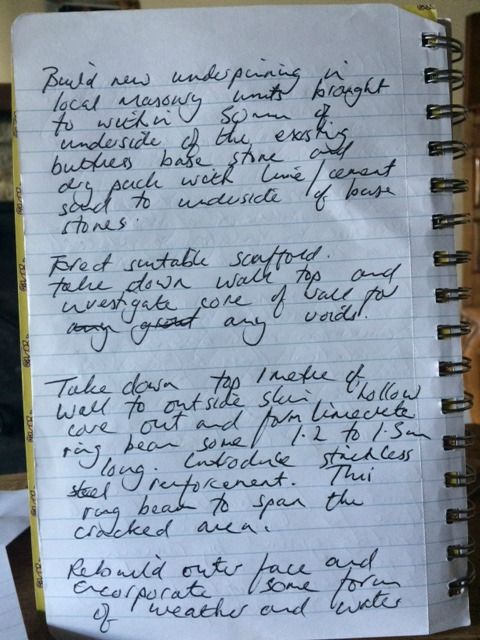 Build new underpinning in
local masonry units brought
to within 50mm of
underside of the existing
buttress base stone and
dry pack with lime/cement
sand to underside of base
stones.
Erect suitable scaffold.
take down wall top and
investigate core of wall for
any grout any voids.
Take down top 1 metre of
wall to outside skin, hollow
core out and form limecrete
ring beam some 1.2 to 1.5m
long. Introduce stainless
steel renforcement. This
ring beam to span the
cracked area.
Rebuild outer face and
encorporate some form
of weather and water